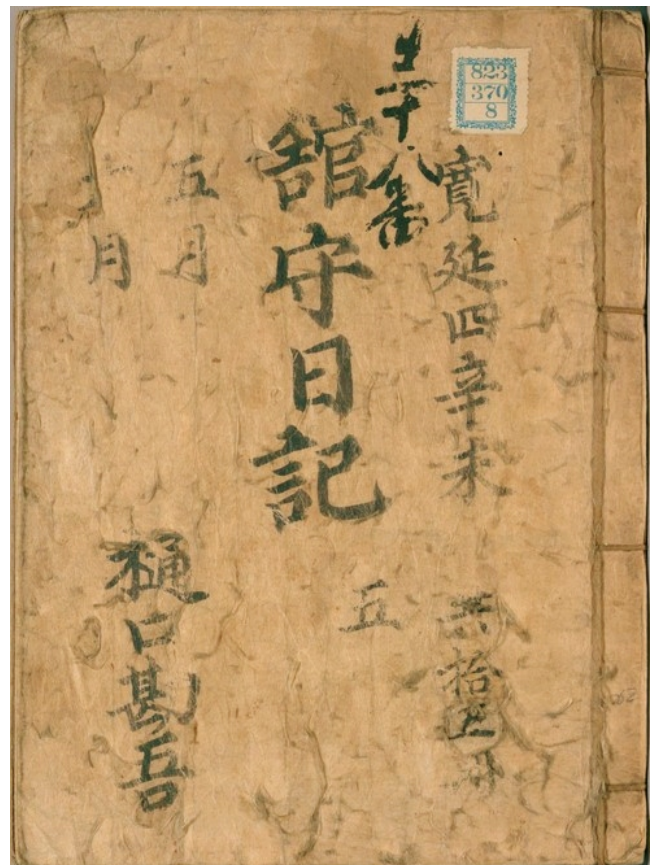 823
370
8
寛延四辛未
十八番
舘守日記
五
五月
月
樋口甚吾